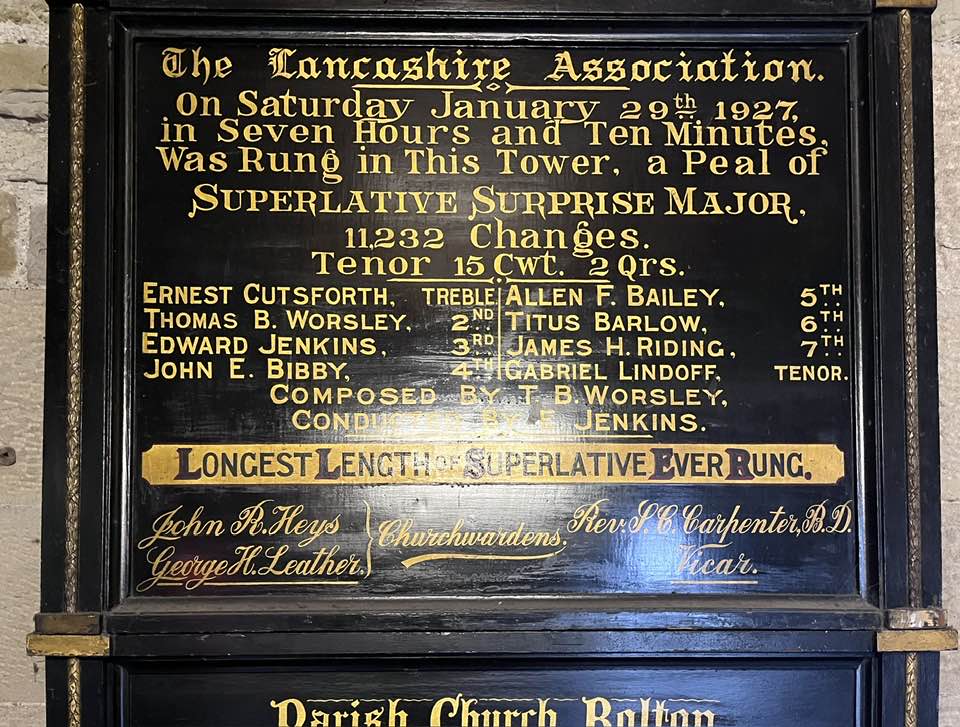 The Lancashire Association.
On Saturday January 29th 1927,
in Seven Hours and Ten Minutes,
Was Rung in This Tower, a Peal of
SUPERLATIVE SURPRISE MAJOR,
11,232 Changes.
Tenor 15 Cwt. 2 Qrs.
ERNEST CUTSFORTH, TREBLE ALLEN F. BAILEY, 5TH
THOMAS B. WORSLEY, 2ND TITUS BARLOW, 6TH
EDWARD JENKINS, 3RD JAMES H. RIDING, 7TH
JOHN E. BIBBY, 4TH GABRIEL LINDOFF, TENOR.
COMPOSED BY T. B. WORSLEY,
CONDUCTED BY E. JENKINS.
LONGEST LENGTH OF SUPERLATIVE EVER RUNG.
John R. Heys
George H. Leather.
Churchwardens.
Rev. S. C. Carpenter, B.D.
Vicar.
Parish Church Bolton